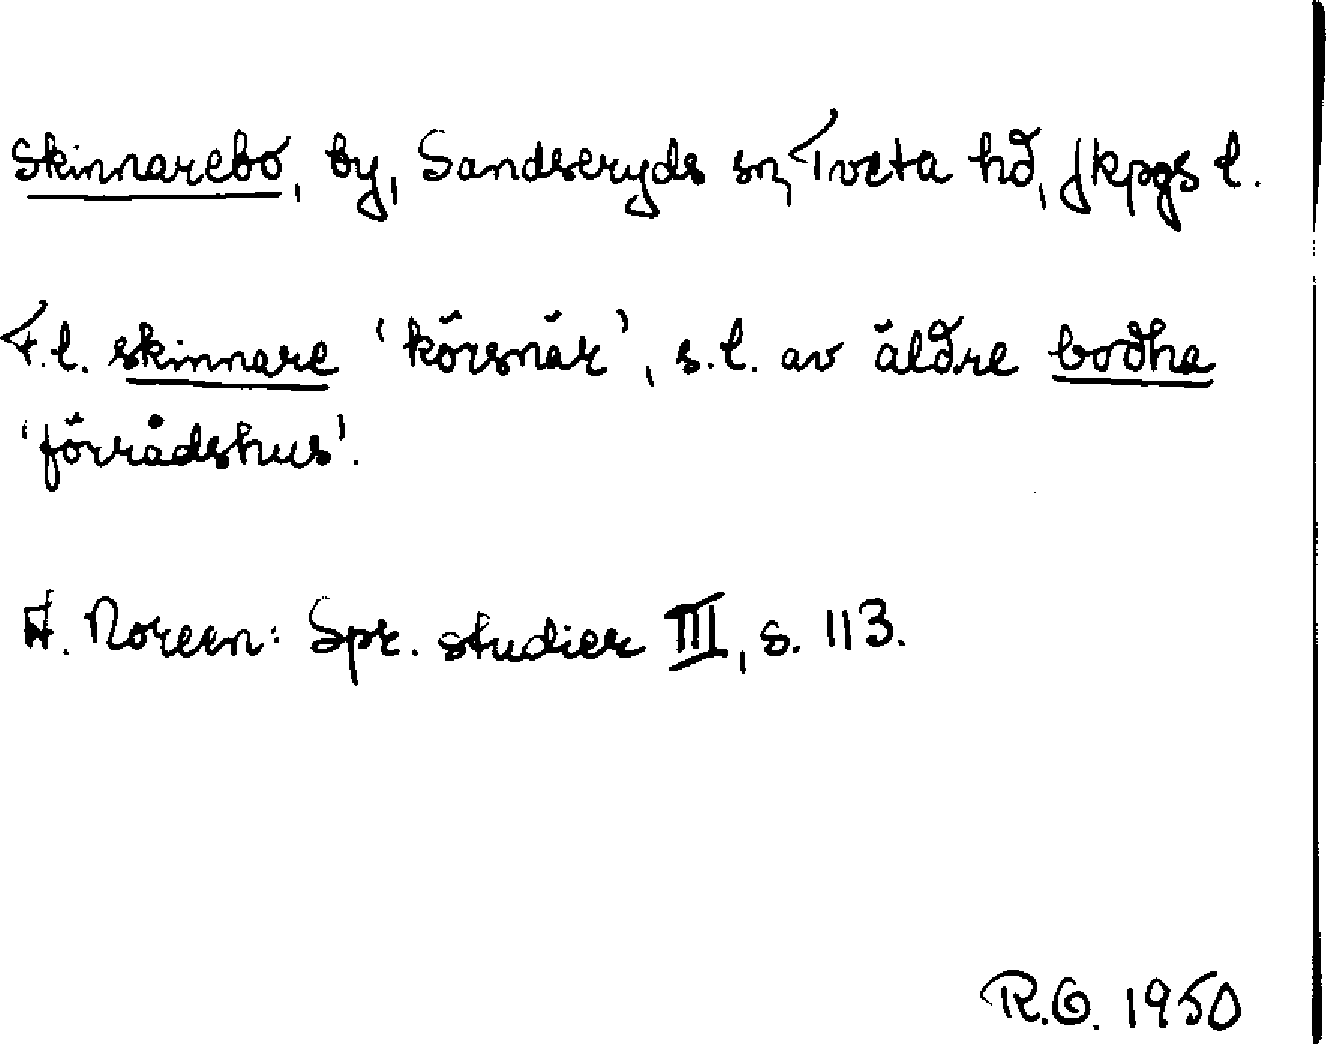 Skinnarebo, by, Sandseryds sn, Tveta hd, Jkpgs l.
F.l. skinnare 'körsnär', s.l. av äldre bodha
'förrådshus'.
A. Noreen: Spr. studier III, s. 113.
R.G. 1950